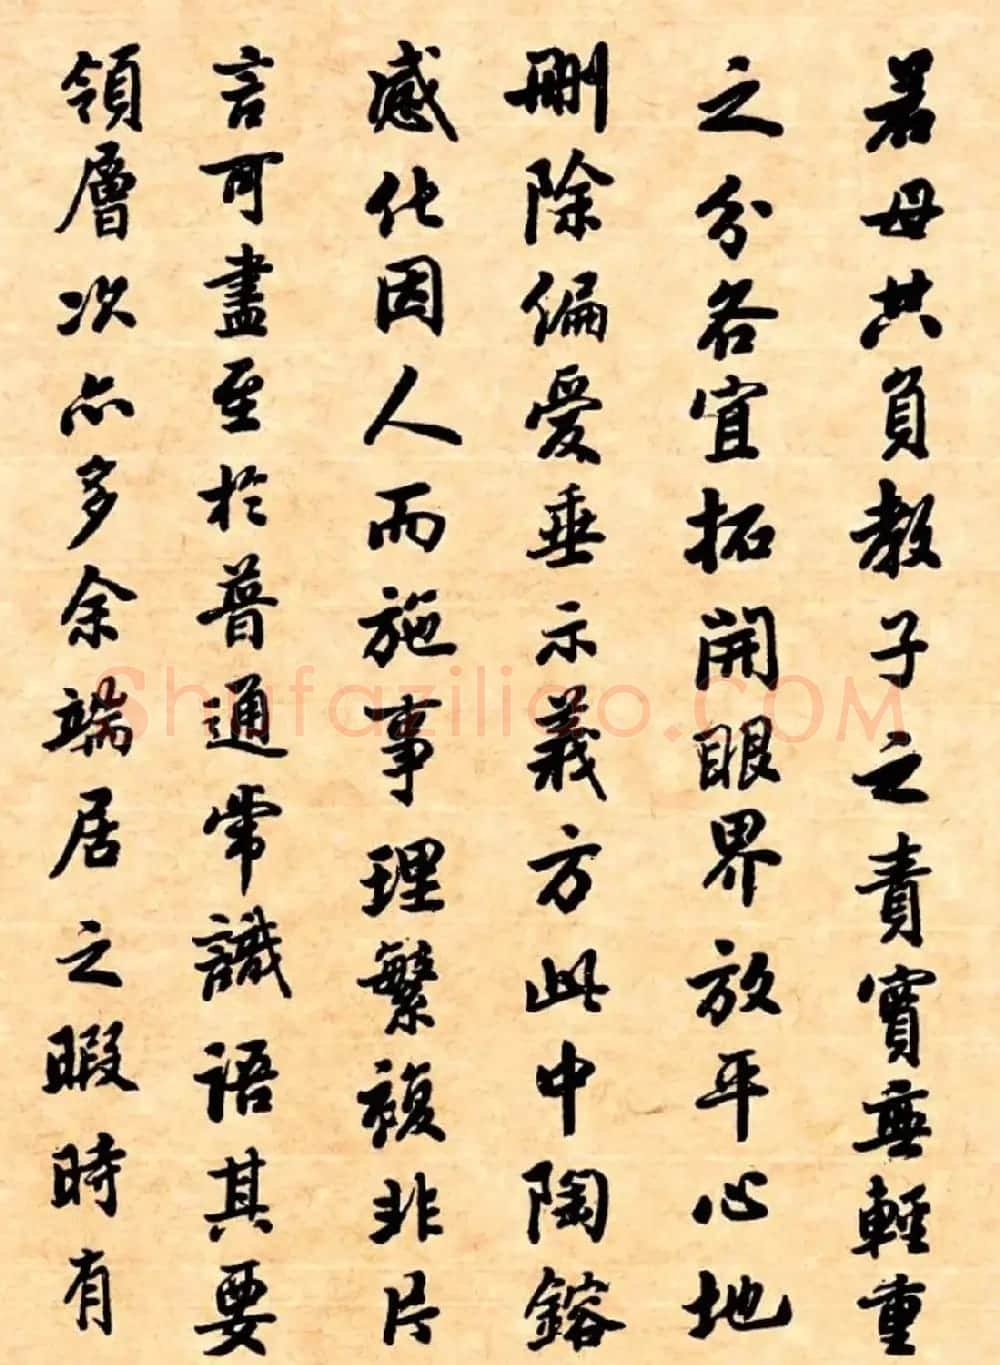 若母共負教子之責實無輕重
之分各宜拓開眼界放平心地
刪除偏愛垂示義方此中陶鎔
感化因人而施事理繁複非片
言可盡至於普通常識語其要
領層次亦多余端居之暇時有
Shufaziliao.COM